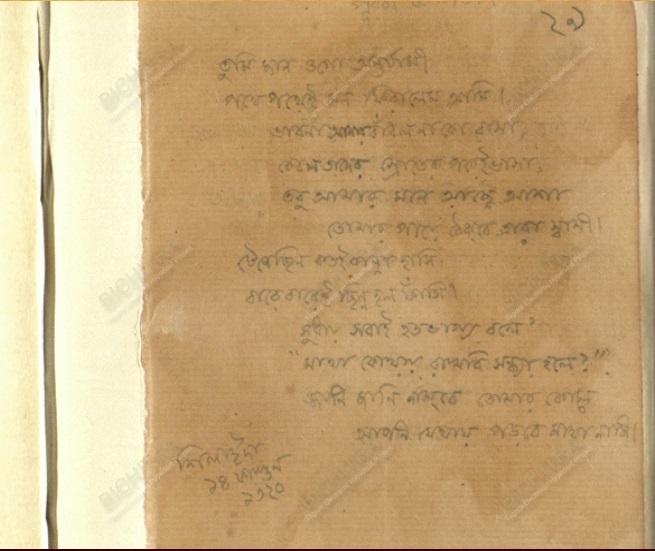 ২৯
তুমি জান ওগো অন্তর্যামী
পথে পথেই মন ফিরালেম আমি।
ভাবনা আমার বাঁধল নাকো বাসা,
কেবল তাদের স্রোতের পরেই ভাসা,
তবু আমার মনে আছে আশা
তোমার পায়ে ঠেকবে তারা স্বামী।
টেনেছিল কতই কান্না হাসি
বারে বারেই ছিন্ন হল ফাঁসি।
সুধায় সবাই হতভাগ্য বলে'
"মাথা কোথায় রাখবি সন্ধ্যা হলে?"
জানি জানি নামবে তোমার কোলে
আপনি যেথায় পড়বে মাথা নামি।
শিলাইদা
১৪ ফাল্গুন
১৩২০